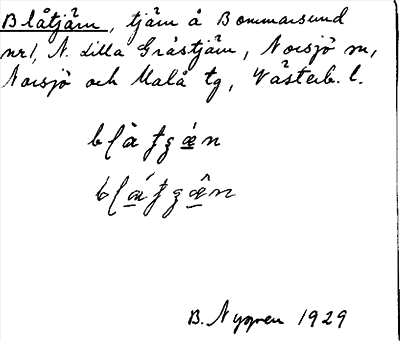 Blåtjärn, tjärn å Bommarsund
nr 1, N. Lilla Gråstjärn, Norsjö sn,
Norsjö och Malå tg, Västerb. l.
B. Nygren 1929